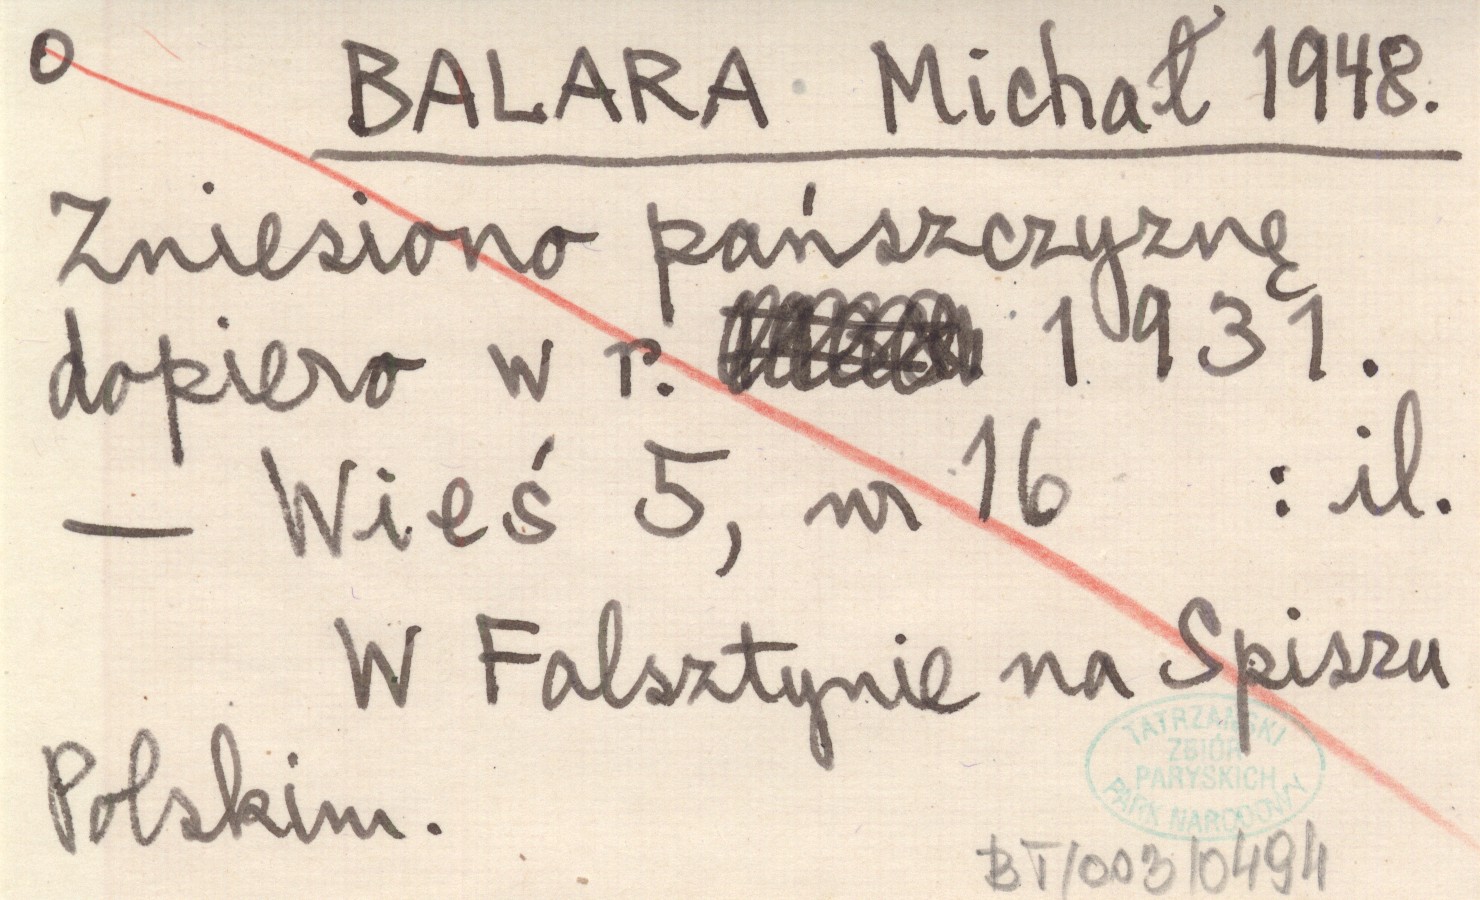 o BALARA Michał 1948.
Zniesiono pańszczyznę
dopiero w r. 1931.
— Wieś 5, nr 16 : il.
W Falsztynie na Spiszu
Polskim.
TATRZAŃSKI
ZBIÓR
PARYSKICH
PARK NARODOWY
BT/003/0494